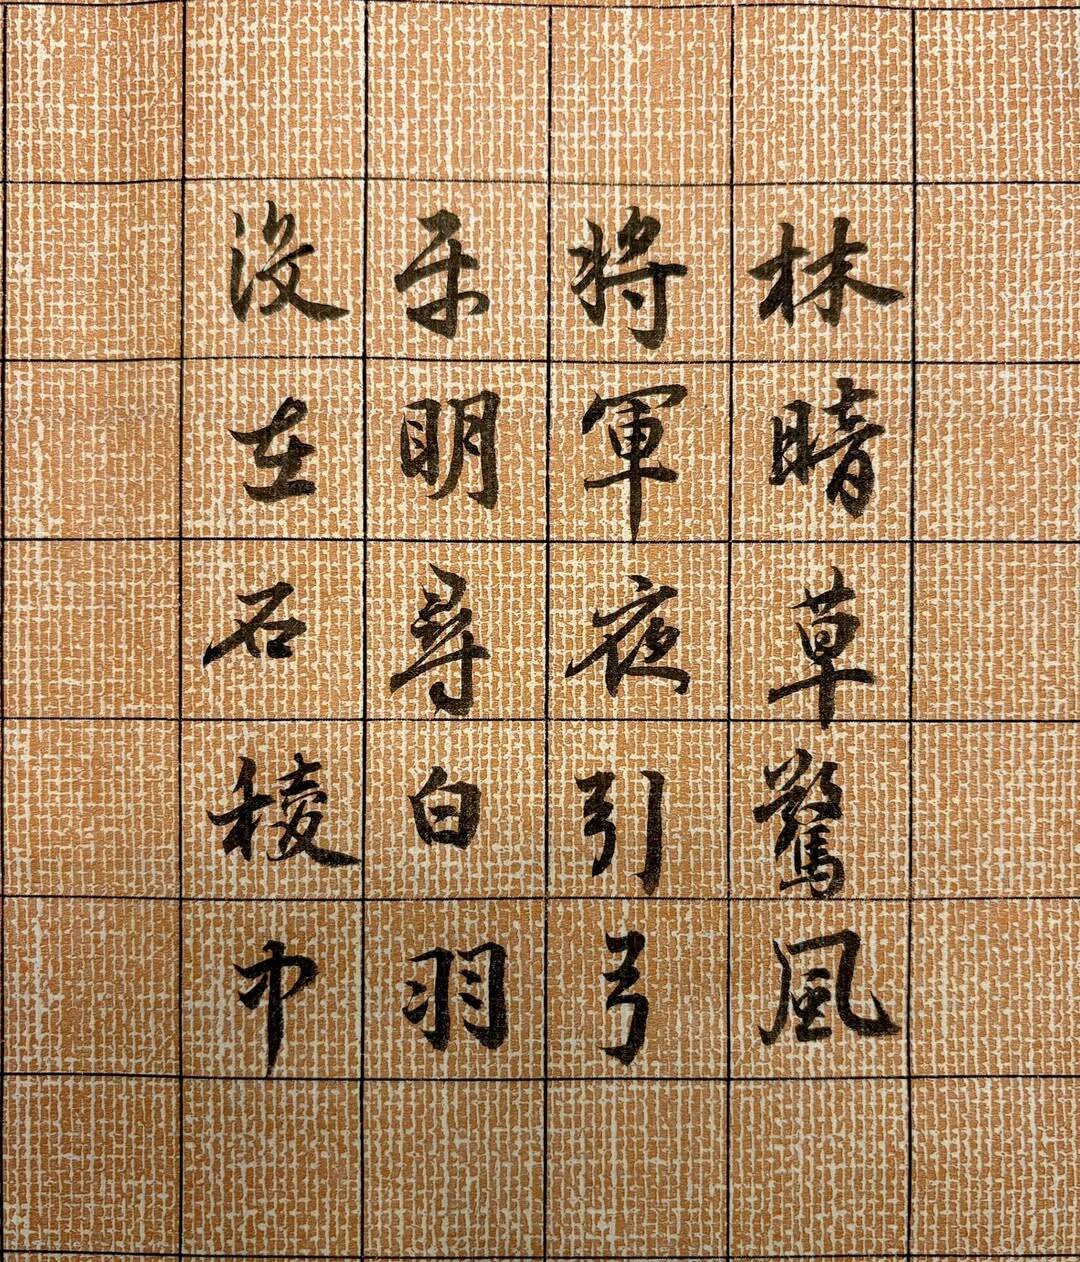 林暗草驚風
將軍夜引弓
平明尋白羽
沒在石稜中